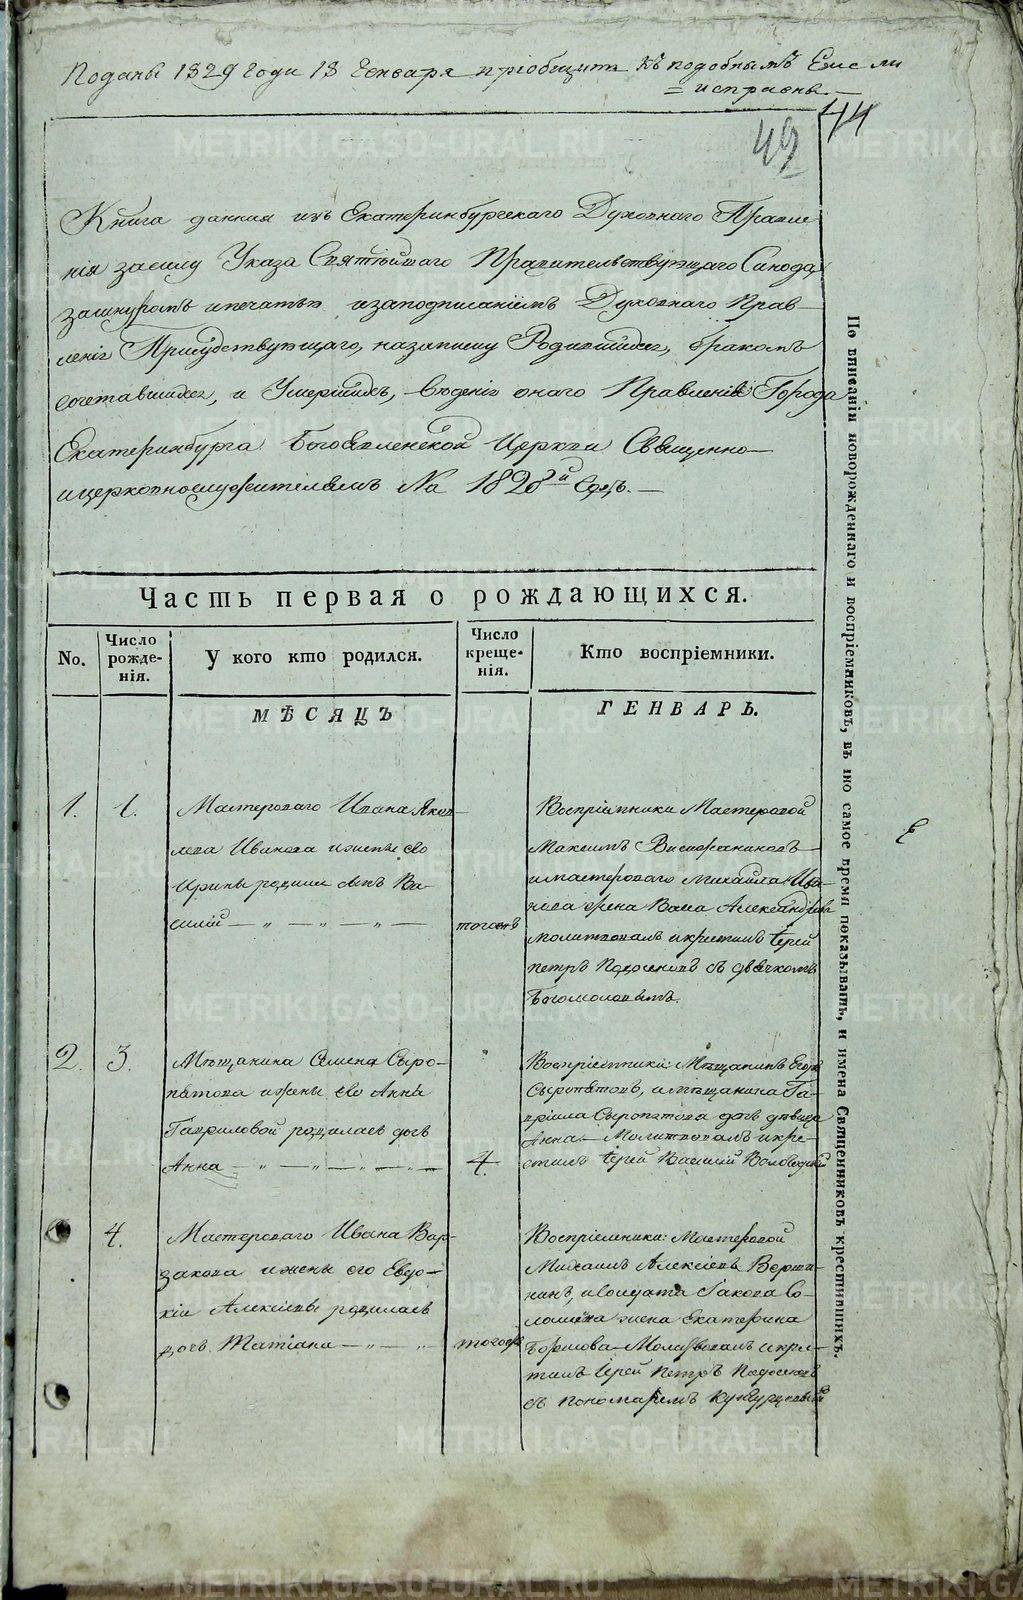 Поданы 1829 года 13 Генваря приобщить къ подобнымъ Если
= исправны. —
44
49
Книга данная изъ Екатеринбургскаго Духовнаго Правле
нія засилу Указа Святѣйшаго Правительствующаго Синода
зашнуромъ ипечатью изаподписаніемъ Духовнаго Прав-
ленія Присудствующаго, назаписку Родившихся, бракомъ
сочетавшихся, и Умершихъ, вѣденія онаго Правленія Города
Екатеринбурга Богоявленской Церкви Священно—
ицерковнослужителямъ На 1828й Годъ. —
Часть первая о рождающихся.
No.
Число рожде- нія.
У кого кто родился.
Число креще- нія.
Кто воспріемники.
МѢСЯЦЪ
ГЕНВАРЬ.
1.
1.
Мастероваго Ивана Яков-
лева Иванова ижены его
Ирины родился сынъ Ва-
силій — „ — „ — „ —
тогожъ
Воспріемники Мастеровой
Максимъ
имастероваго Михайла Ива-
нова жена Васса Александрова
молитвовалъ икрестилъ Іерей
петръ съ дьячкомъ
Богомоловымъ.
2.
3.
Мѣщанина Семена Сыро-
пятова ижены его Анны
Гавриловой родилась дочь
Анна — „ — „ — „ — „ —
4.
Воспріемники: Мѣщанинъ Егоръ
Сыропятовъ, имѣщанина Га-
вріила Сыропятова дочь дѣвица
Анна — Молитвовалъ икре-
стилъ Іерей Василій
4.
Мастероваго Ивана Вар-
закова ижены его Евдо-
кіи Алексѣевы родилась
дочь Татіана — „ — „ —
тогожъ
Воспріемники: мастеровой
Михаилъ Алексѣевъ Верши-
нинъ, исолдата Іакова Со-
ломеина жена Екатерина
Борисова — Молитвовалъ икре-
тилъ Іерей Петръ
съ пономаремъ
По вписаніи новорожденнаго и воспріемниковъ, въ то самое время показывать, и имена Священниковъ крестившихъ.